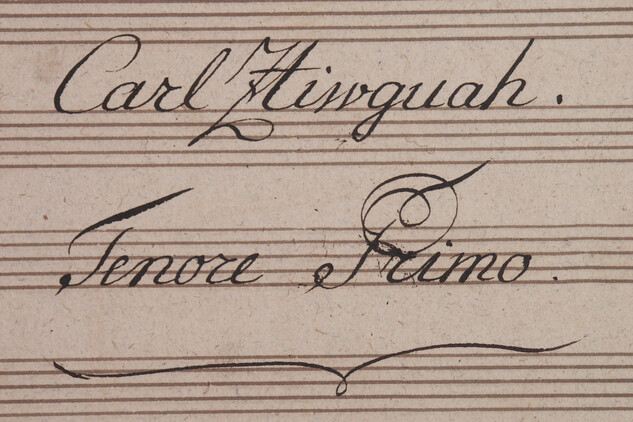 Carl Hiwguah.
Tenore Primo.